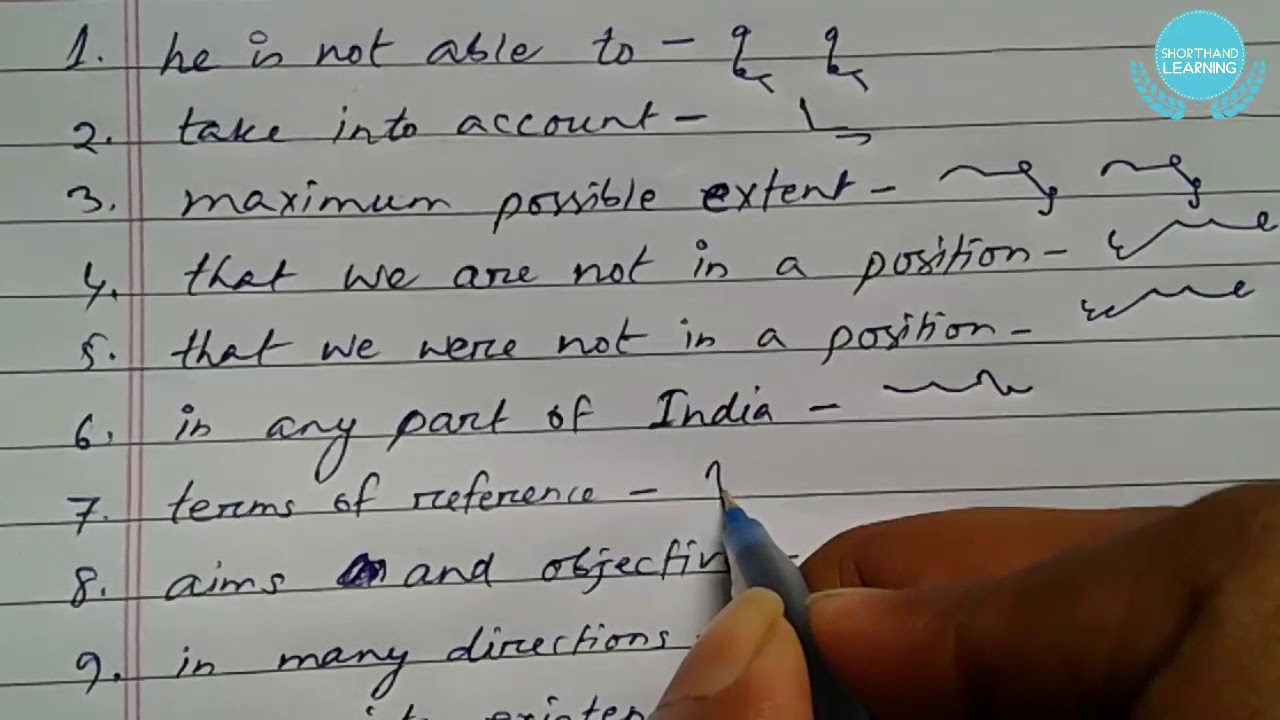 SHORTHAND
LEARNING
1. he is not able to -
2. take into account -
3. maximum possible extent -
4. that we are not in a position -
5. that we were not in a position -
6. in any part of India -
7. terms of reference -
8. aims and
9. in many directions